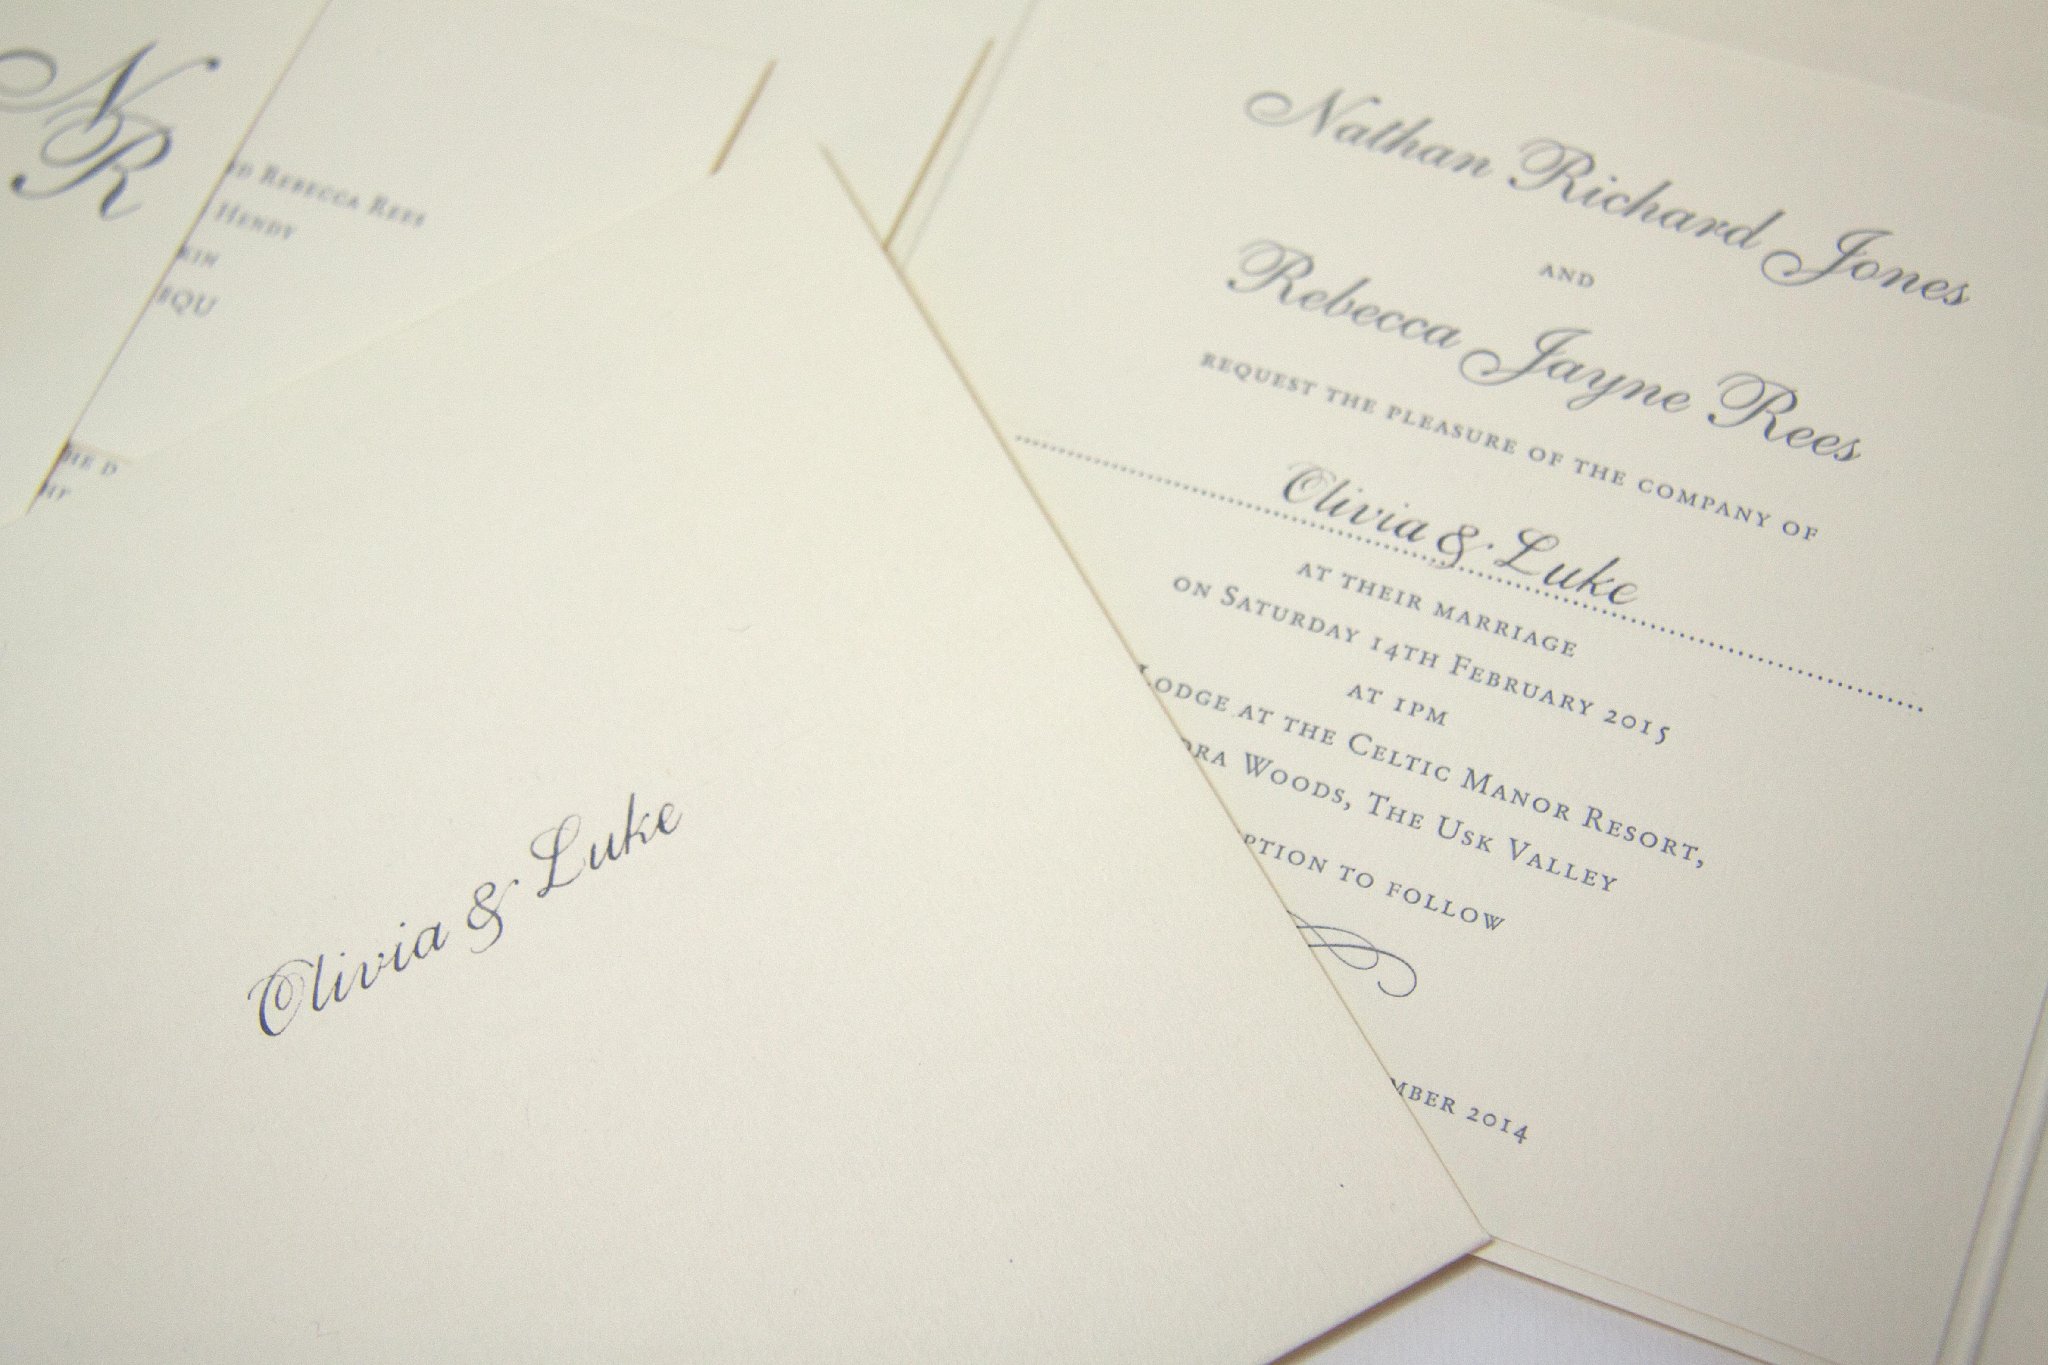 N
R
Rebecca Rees
Hendy
Olivia & Luke
Nathan Richard Jones
and
Rebecca Jayne Rees
request the pleasure of the company of
Olivia & Luke
at their marriage
on Saturday 14th February 2015
at 1pm
Lodge at the Celtic Manor Resort,
Woods, The Usk Valley
to follow
2014